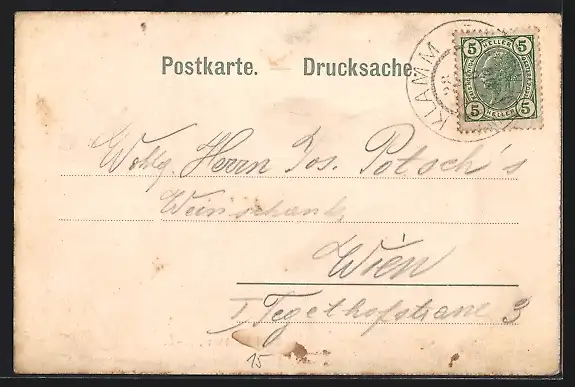 Postkarte. — Drucksache.
KLAMM
5 HELLER 5
5 HELLER 5
Wohlg. Herrn Jos. Potsch's
Weinschank
Wien
I, Tegethofstrasse 3
15